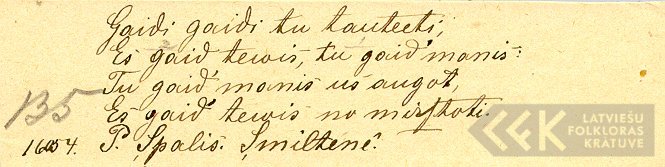 Gaidi gaidi tu tauteeti,
Es gaid' tewis, tu gaid' manis:
Tu gaid' manis us augot,
Es gaid' tewis no mirstoti.
B5
1654. P. Spalis. Smiltenē.
LATVIEŠU
FOLKLORAS
KRĀTUVE